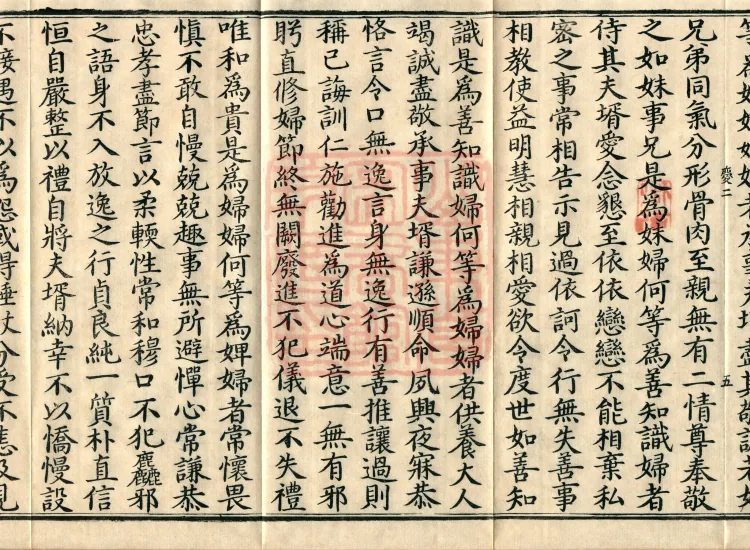 等為妹婦妹婦者承事夫壻盡其敬誠若如
兄弟同氣分形骨肉至親無有二情尊奉敬
二
五
之如妹事兄是為妹婦何等為善知識婦者
侍其夫壻愛念懇至依依戀戀不能相棄私
密之事常相告示見過依訶令行無失善事
相教使益明慧相親相愛欲令度世如善知
識是為善知識婦何等為婦婦者供養大人
竭誠盡敬承事夫壻謙遜順命夙興夜寐恭
恪言令口無逸言身無逸行有善推讓過則
稱己誨訓仁施勸進為道心端意一無有邪
眄直修婦節終無闕廢進不犯儀退不失禮
唯和為貴是為婦婦何等為婢婦者常懷畏
慎不敢自慢兢兢趣事無所避憚心常謙恭
忠孝盡節言以柔輭性常和穆口不犯麤邪
之語身不入放逸之行貞良純一質朴直信
恒自嚴整以禮自將夫壻納幸不以憍慢設
不接遇不以為怨或得捶杖分受不恚及見